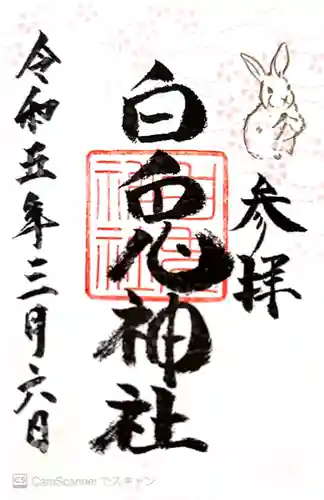 参拝
白兎神社
白兎神社
令和五年三月六日
CS CamScanner でスキャン